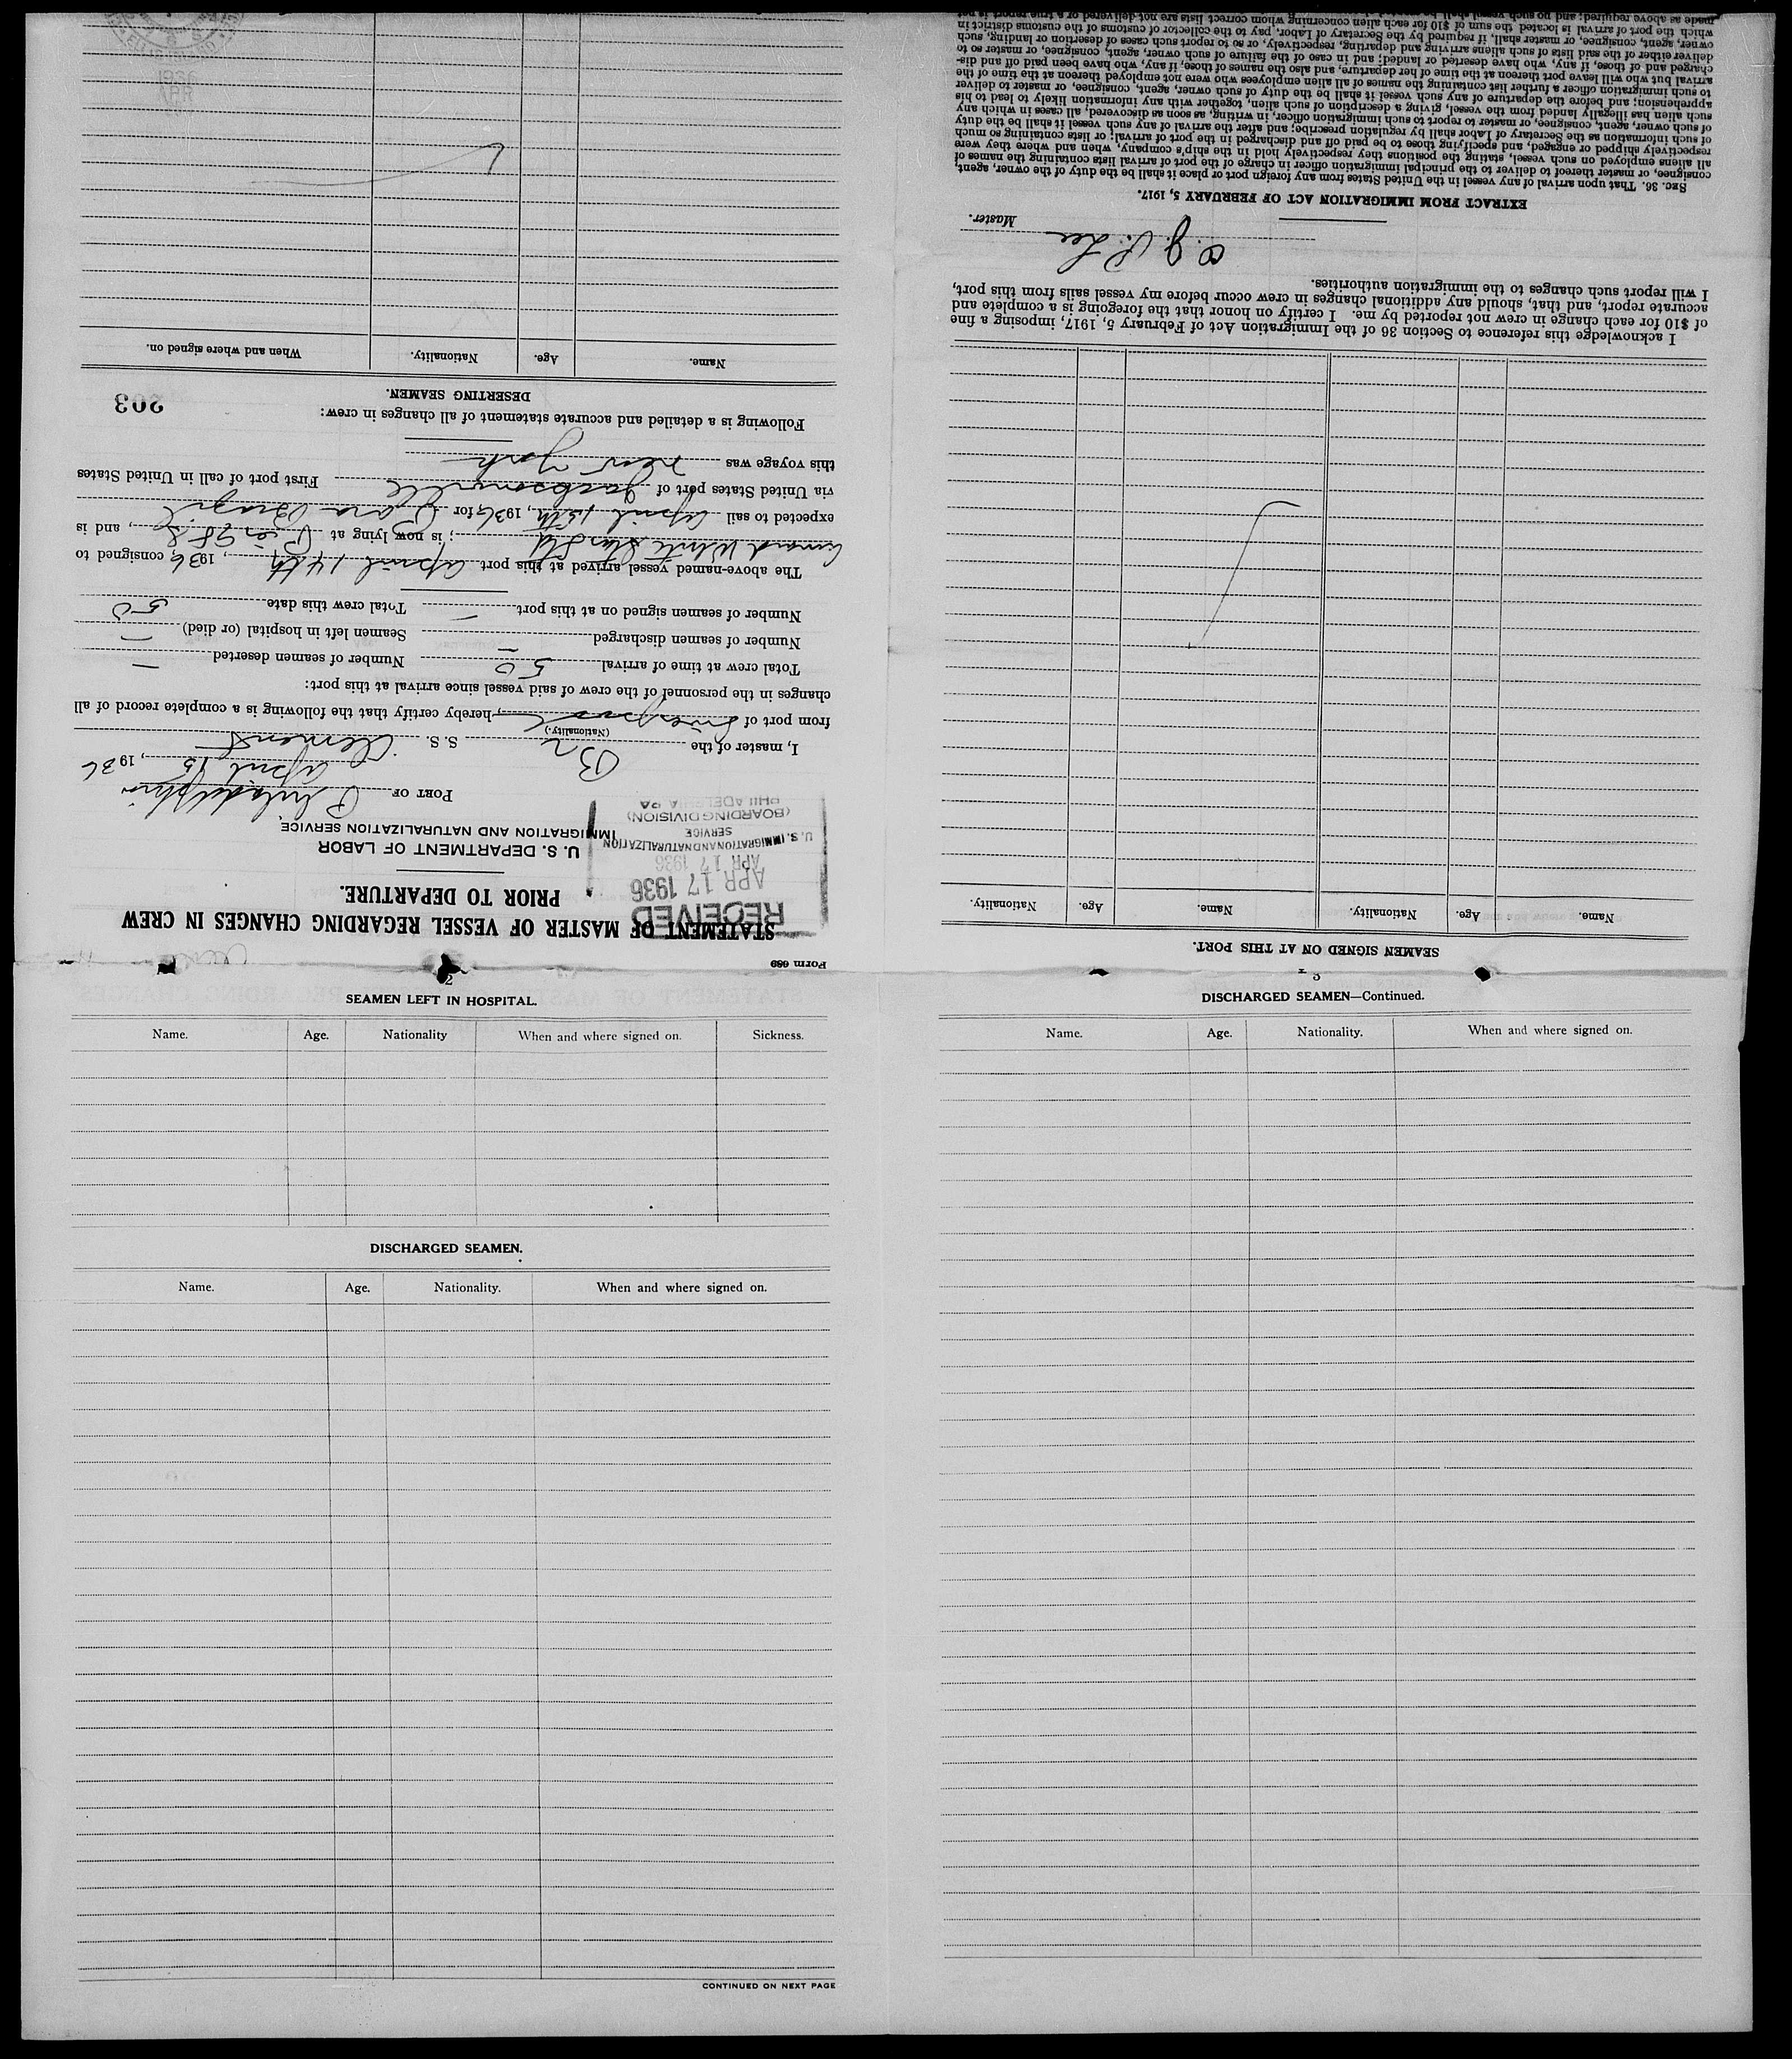 Form 689
STATEMENT OF MASTER OF VESSEL REGARDING CHANGES IN CREW
PRIOR TO DEPARTURE.
RECEIVED
APR 17 1936
APR 17 1936
U. S. IMMIGRATION AND NATURALIZATION
SERVICE
(BOARDING DIVISION)
PHILADELPHIA PA
U. S. DEPARTMENT OF LABOR
IMMIGRATION AND NATURALIZATION SERVICE
PORT OF Philadelphia
April 15, 1936
I, master of the Br S. S. Clement
(Nationality.)
from port of Liverpool, hereby certify that the following is a complete record of all
changes in the personnel of the crew of said vessel since arrival at this port:
Total crew at time of arrival 50 Number of seamen deserted —
Number of seamen discharged — Seamen left in hospital (or died) —
Number of seamen signed on at this port — Total crew this date 50
The above-named vessel arrived at this port April 14th, 1936, consigned to
Cunard White Star Ltd; is now lying at Pier 98 S, and is
expected to sail April 15th, 1936, for Para Brazil
via United States port of Jacksonville First port of call in United States
this voyage was New York
Following is a detailed and accurate statement of all changes in crew:
203
DESERTING SEAMEN.
Name. Age. Nationality. When and where signed on.
1936
APR
2
SEAMEN LEFT IN HOSPITAL.
Name. Age. Nationality When and where signed on. Sickness.
DISCHARGED SEAMEN.
Name. Age. Nationality. When and where signed on.
CONTINUED ON NEXT PAGE
3
DISCHARGED SEAMEN—Continued.
Name. Age. Nationality. When and where signed on.
SEAMEN SIGNED ON AT THIS PORT.
Name. Age. Nationality. Name. Age. Nationality.
I acknowledge this reference to Section 36 of the Immigration Act of February 5, 1917, imposing a fine
of $10 for each change in crew not reported by me. I certify on honor that the foregoing is a complete and
accurate report, and that, should any additional changes in crew occur before my vessel sails from this port,
I will report such changes to the immigration authorities.
Lee
Master.
EXTRACT FROM IMMIGRATION ACT OF FEBRUARY 5, 1917.
SEC. 36. That upon arrival of any vessel in the United States from any foreign port or place it shall be the duty of the owner, agent,
consignee, or master thereof to deliver to the principal immigration officer in charge of the port of arrival lists containing the names of
all aliens employed on such vessel, stating the positions they respectively hold in the ship's company, when and where they were
respectively shipped or engaged, and specifying those to be paid off and discharged in the port of arrival; or lists containing so much
of such information as the Secretary of Labor shall by regulation prescribe; and after the arrival of any such vessel it shall be the duty
of such owner, agent, consignee, or master to report to such immigration officer, in writing, as soon as discovered, all cases in which any
such alien has illegally landed from the vessel, giving a description of such alien, together with any information likely to lead to his
apprehension; and before the departure of any such vessel it shall be the duty of such owner, agent, consignee, or master to deliver
to such immigration officer a further list containing the names of all alien employees who were not employed thereon at the time of the
arrival but who will leave port thereon at the time of her departure, and also the names of those, if any, who have been paid off and dis-
charged and of those, if any, who have deserted or landed; and in case of the failure of such owner, agent, consignee, or master so to
deliver either of the said lists of such aliens arriving and departing, respectively, or so to report such cases of desertion or landing, such
owner, agent, consignee, or master shall, if required by the Secretary of Labor, pay to the collector of customs of the customs district in
which the port of arrival is located the sum of $10 for each alien concerning whom correct lists are not delivered or a true report is not
made as above required; and no such vessel shall be